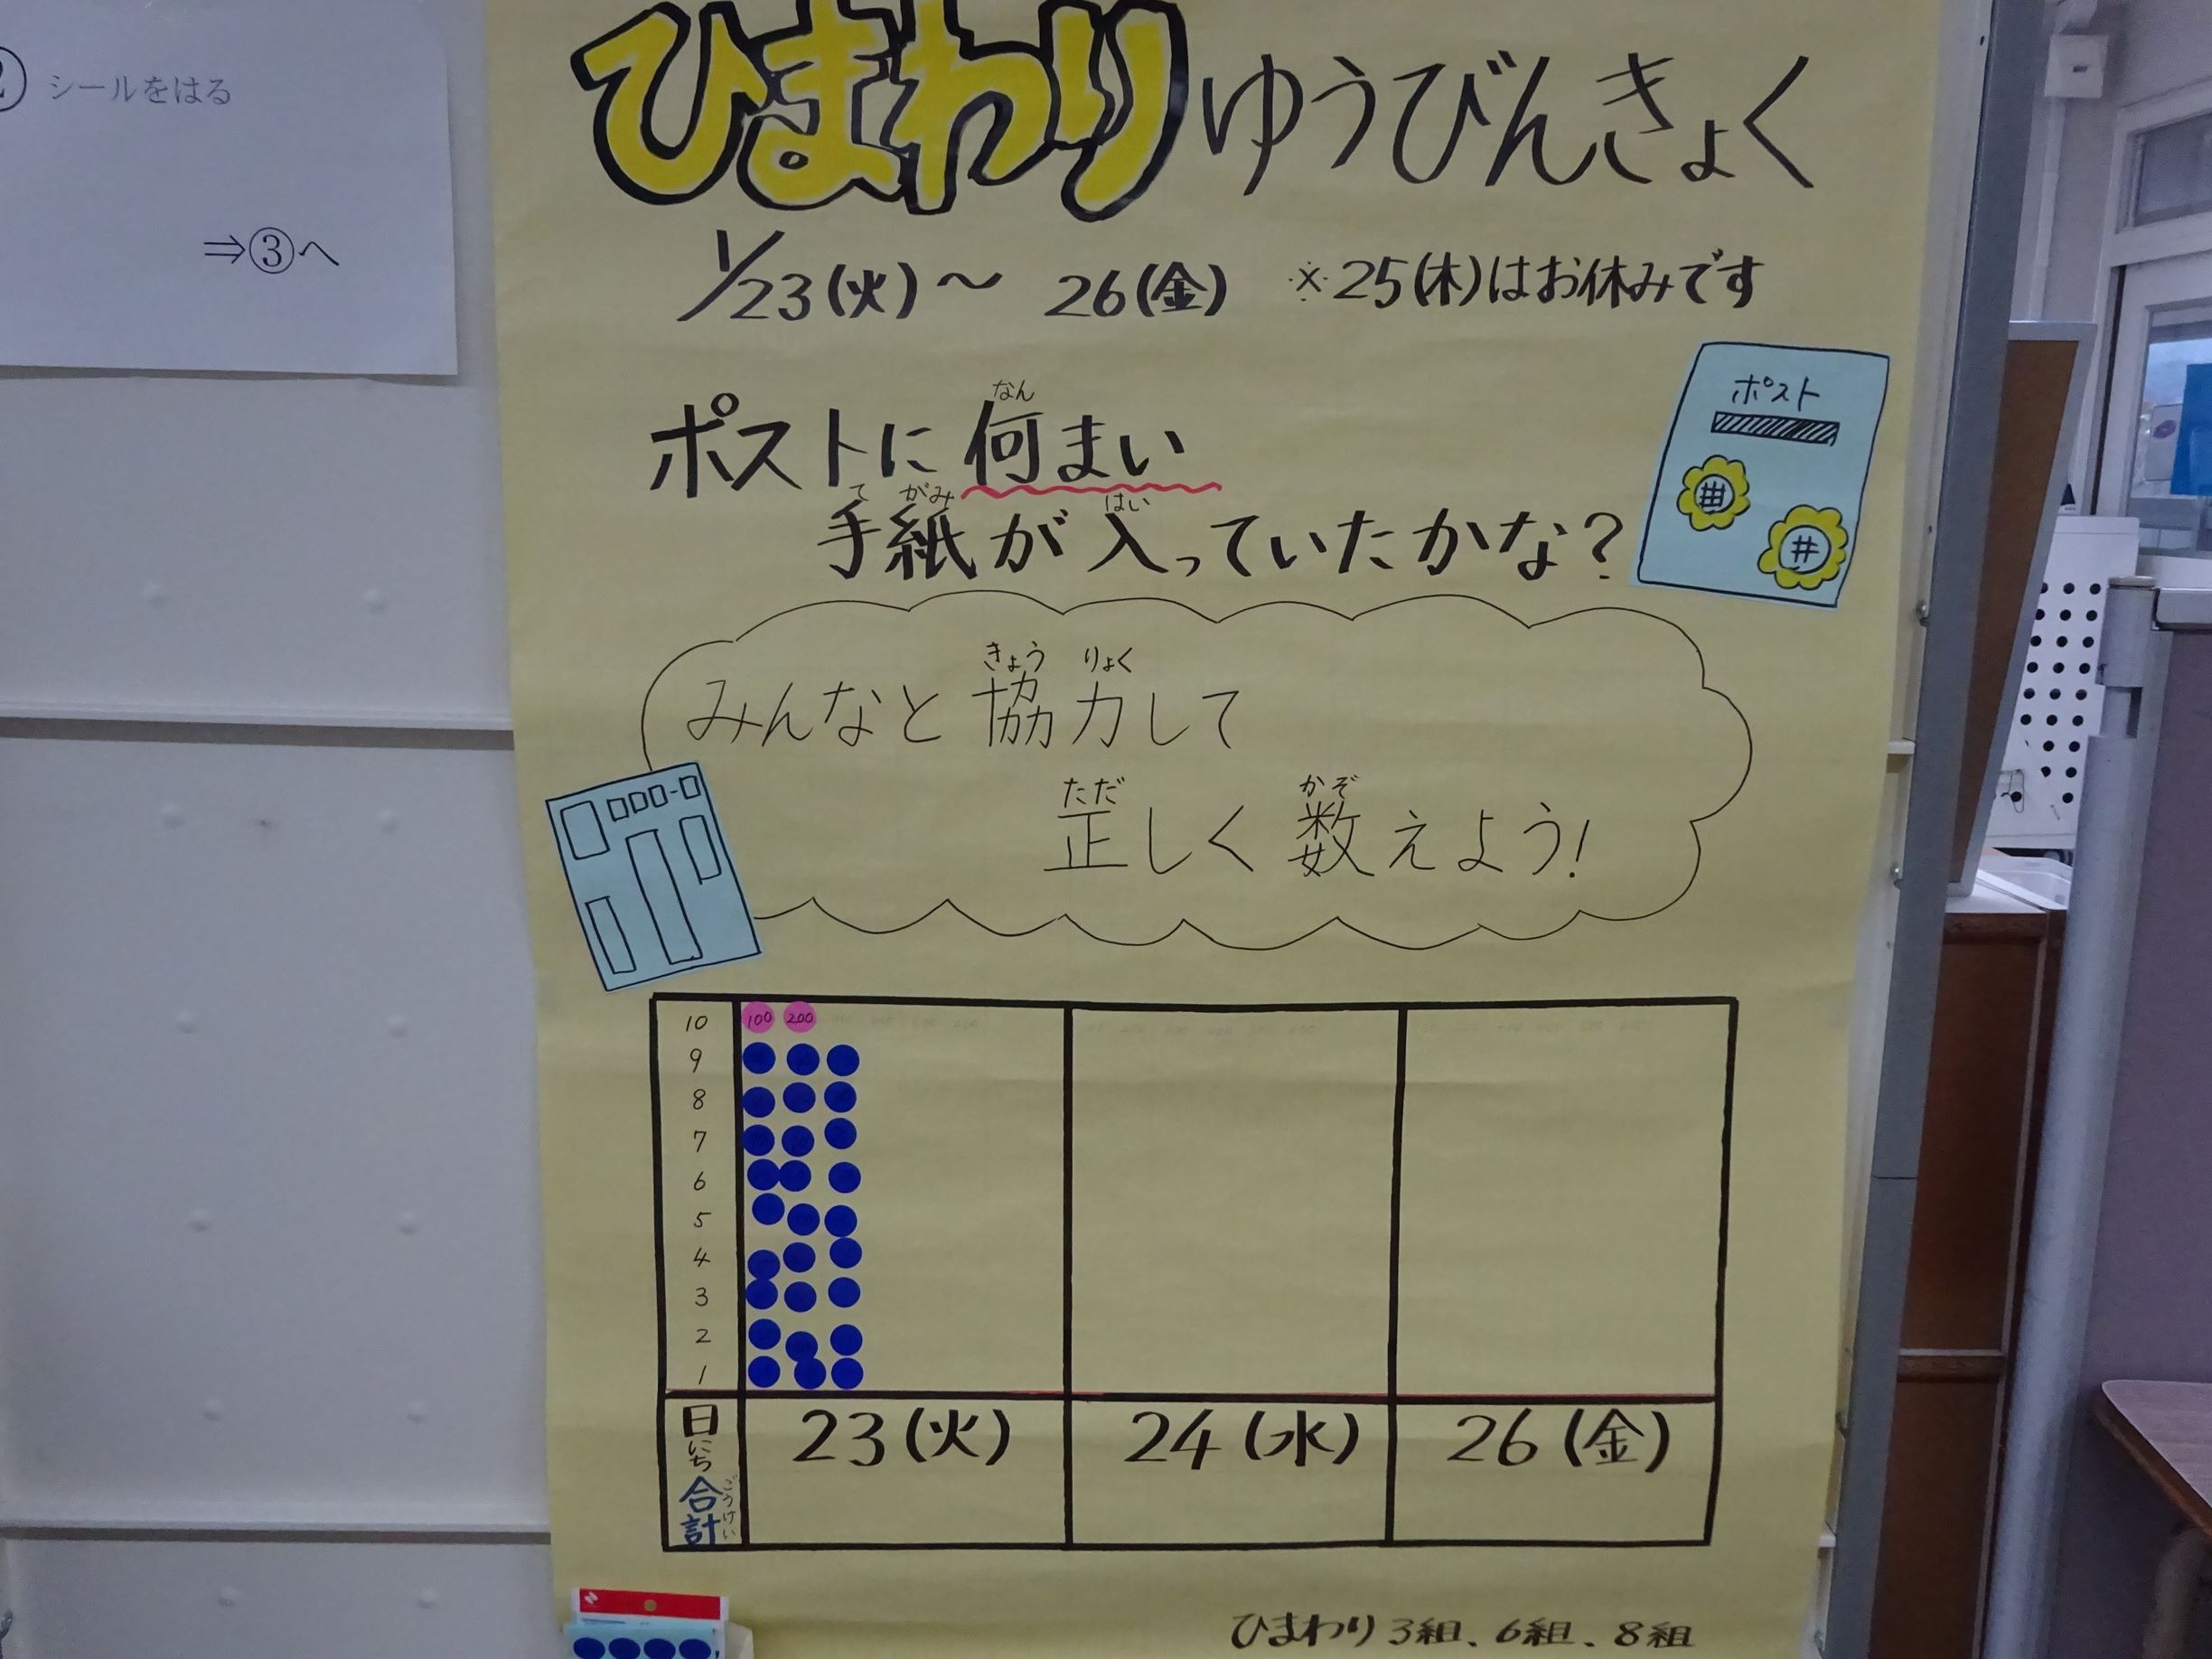 シールをはる
⇒③へ
ひまわりゆうびんきょく
1/23(火)～ 26(金) ※25(木)はお休みです
ポスト
なん
ポストに何まい
て がみ はい
手紙が入っていたかな?
きょう りょく
みんなと協力して
ただ かぞ
正しく数えよう!
10 100 200
9
8
7
6
5
4
3
2
1
日 23(火) 24(水) 26(金)
にち
合計 ごうけい
ひまわり3組、6組、8組